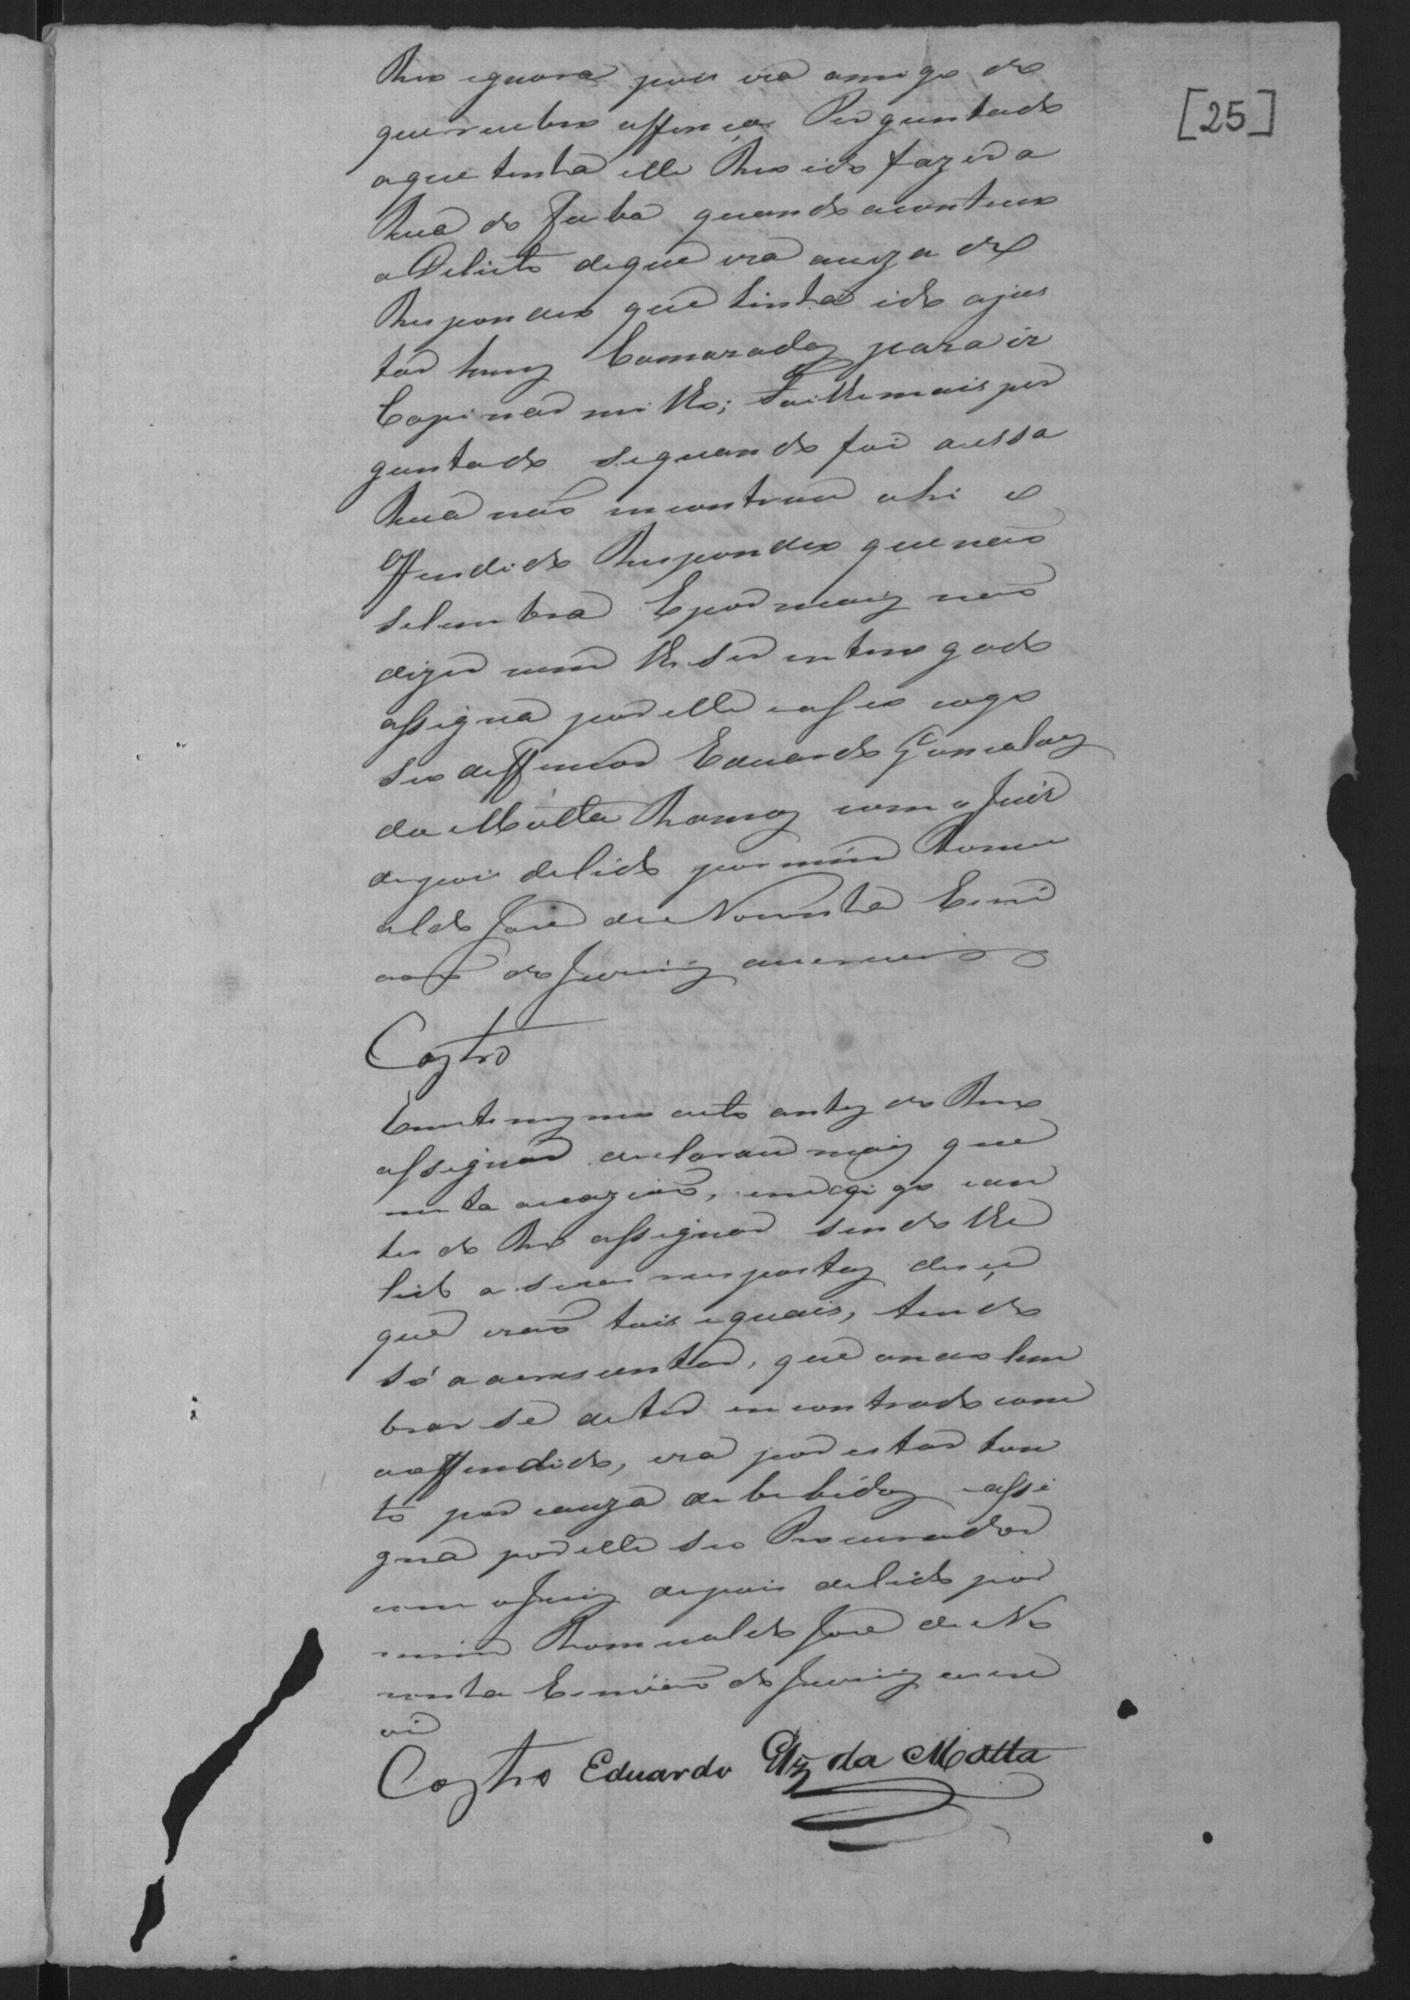 [25]
Reo ignora pois era amigo do
que recebeo affença. Perguntado
a que tinha elle Reo ido fazer a
Rua do Fubá quando aconteceo
o Delicto de que era acuzado
Respondeo que tinha ido ajus
tar huns Camaradas para ir
Capinar milho; Foi lhe mais per
guntado se quando foi a essa
Rua não encontrou ahi o
Offendido Respondeo que não
se lembra E por mais não
dizer nem lhe ser enterrogado
assigna por elle a seo rogo
seo deffençor Eduardo Gonçalves
da Motta Ramos com o Juis
depois de lido por mim Romu
aldo José de Noronha Escri
vão do Jury que escrevi
Castro
Em tempo
antes do Reo
assignar declarou mais que
nesta occazião, digo can
tes do Reo assignar sendo lhe
lido a suas respostas disse
que erão tais e quais, tendo
só a accrescentar, que a não lem
brar se de ter encontrado com
o offendido, era por estar ton
to por cauza de bebidas e assi
gna por elle seo Procurador
com o Juiz depois de lido por
mim Romualdo José de No
ronha Escrivão do Jury escre
vi
Castro Eduardo Glz da Motta